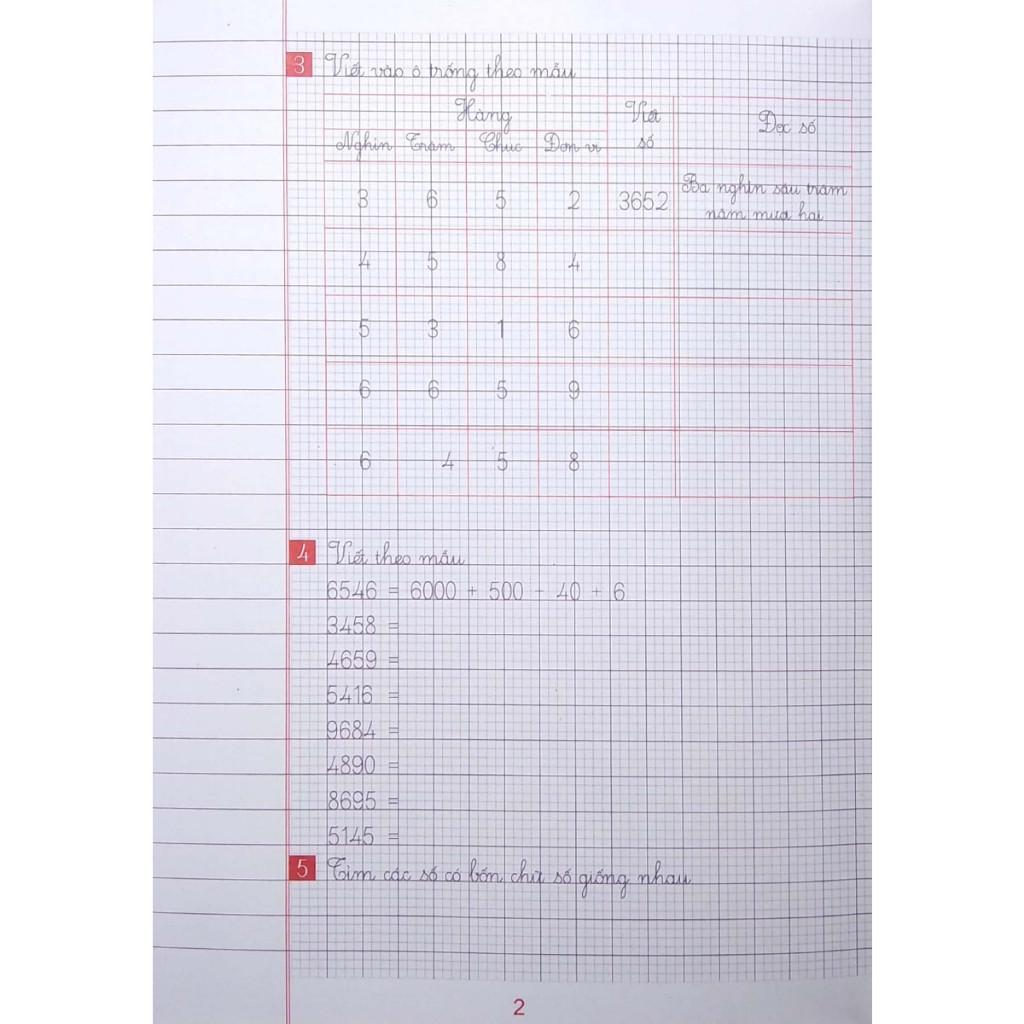 3 Viết vào ô trống theo mẫu
Hàng Viết số Đọc số
Nghìn Trăm Chục Đơn vị
3 6 5 2 3652 Ba nghìn sáu trăm
năm mươi hai
4 5 8 4
5 3 1 6
6 6 5 9
6 4 5 8
4 Viết theo mẫu
6546 = 6000 + 500 + 40 + 6
3458 =
4659 =
5416 =
9684 =
4890 =
8695 =
5145 =
5 Tìm các số có bốn chữ số giống nhau
2